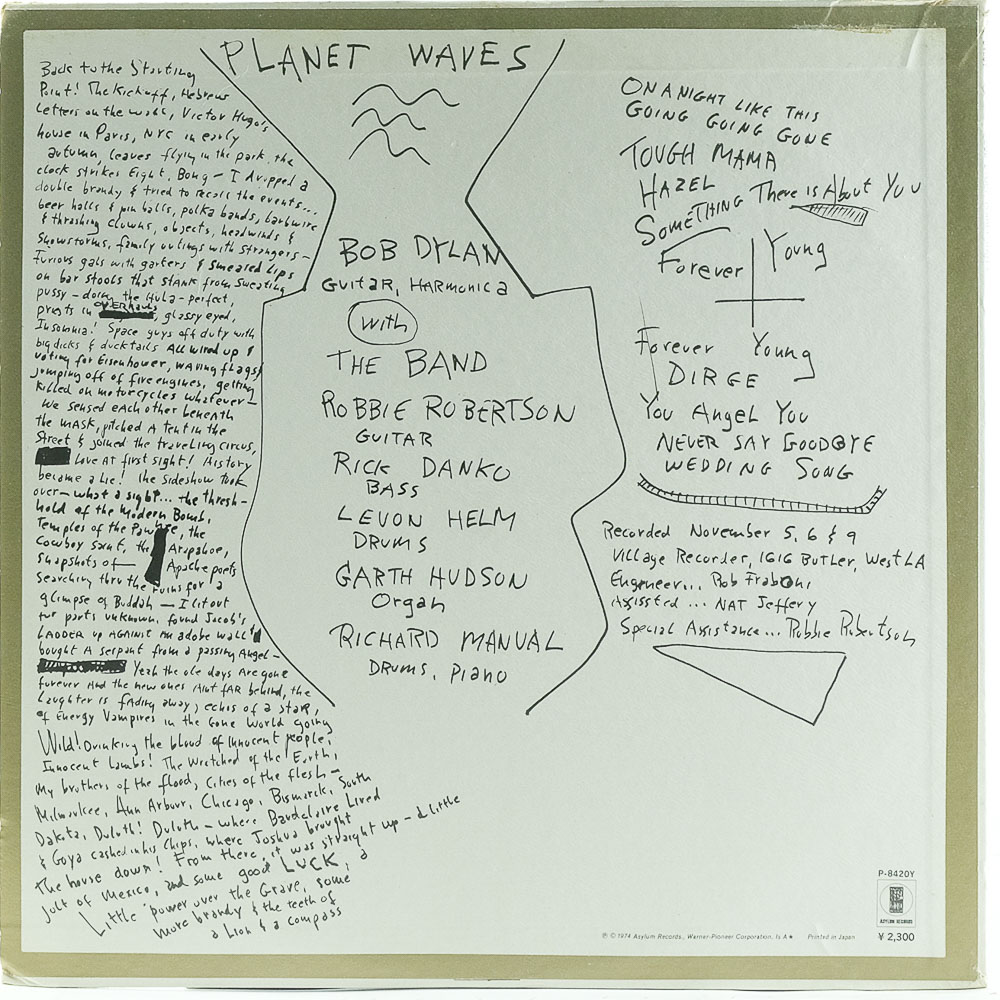 PLANET WAVES
Back to the Starting
Point! The Kickoff, Hebrew
Letters on the wall, Victor Hugo's
house in Paris, NYC in early
autumn, leaves flying in the park, the
clock strikes Eight, Bong — I dropped a
double brandy & tried to recall the events...
beer halls & pin balls, polka bands, barbwire
& thrashing clowns, objects, headwinds &
Snowstorms, family outings with strangers —
Furious gals with garters & smeared Lips
on bar stools that stank from sweating
pussy — doing the Hula — perfect,
priests in OVERhauls, glassy eyed,
Insomnia! Space guys off duty with
big dicks & ducktails All wired up &
voting for Eisenhower, waving flags &
jumping off of fire engines, getting
killed on motorcycles whatever —
We sensed each other beneath
the mask, pitched a tent in the
Street & joined the traveling circus,
Love at first sight! History
became a lie! the sideshow took
over — what a sight... the thresh-
hold of the Modern Bomb,
Temples of the Pawnee, the
Cowboy saint, the Arapahoe,
snapshots of — Apache poets
Searching thru the ruins for a
glimpse of Buddah — I lit out
for parts unknown, found Jacob's
LADDER up AGAINST an adobe wall &
bought A serpant from a passing Angel —
Yeah the ole days Are gone
forever And the new ones Aint fAR behind, the
Laughter is fAding away, echos of a staR,
of Energy Vampires in the Gone World going
Wild! Drinking the blood of innocent people,
Innocent lambs! The Wretched of the Earth,
My brothers of the flood, Cities of the flesh —
Milwaukee, Ann Arbour, Chicago, Bismarck, South
Dakota, Duluth! Duluth — where Baudelaire Lived
& Goya cashed in his Chips, where Joshua brought
the house down! From there, it was straight up — a little
jolt of Mexico, and some good LUCK, a
Little power over the Grave, some
more brandy & the teeth of
a Lion & a compass
BOB DYLAN
Guitar, HARmonica
with
THE BAND
ROBBIE ROBERTSON
GUITAR
RICK DANKO
BASS
LEVON HELM
DRUMS
GARTH HUDSON
Organ
RICHARD MANUAL
DRUMS, Piano
ON A NIGHT LIKE THIS
GOING GOING GONE
TOUGH MAMA
HAZEL
SOMETHING There is About You
Forever Young
Forever Young
DIRGE
You Angel You
NEVER SAY GOODBYE
WEDDING SONG
Recorded November 5, 6 & 9
Village Recorder, 1616 BUTLER, West LA
Engineer... Rob Fraboni
Assissted ... NAT Jeffery
Special Assistance... Robbie Robertson
P-8420Y
ASYLUM RECORDS
¥ 2,300
℗ © 1974 Asylum Records, Warner-Pioneer Corporation, Printed in Japan